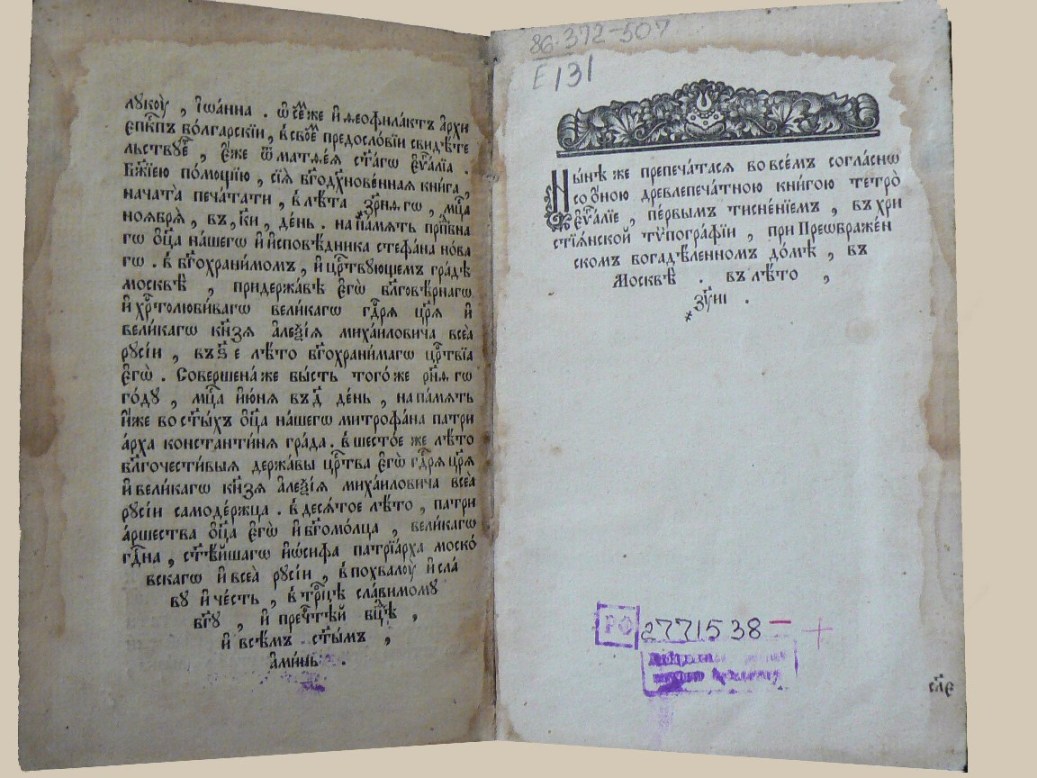 лꙋкоу̀ , і҆ѡа́нна . ѿ се́мже и҆ ѳеофила́ктъ а҆рхи
є҆пⷭ҇кпъ бо́лгарскїи , в̾ свое́мъ предосло́вїи свидѣ́те
льствꙋетъ , є҆́же ѿ матѳе́ѧ ст҃а́гѡ є҆ѵⷢ҇а́лїа .
Бж҃їею по́мощїю , сїѧ̀ бг҃одꙋхнове́ннаѧ кни́га ,
нача́та̀ печа́тати , в̾ лѣ́та ҂зрн҃ѧ гѡ , мⷭ҇ца
ноѧ́брѧ , въ , к҃и , де́нь . на па́мѧть прпⷣбна
гѡ ѻ҆ц҃а̀ на́шегѡ и҆ и҆сповѣ́дника стефа́на но́ва
гѡ . в̾ бг҃охрани́момъ , и҆ црⷭ҇твꙋющемъ гра́дѣ
москвѣ̀ , при держа́вѣ є҆гѡ̀ бл҃говѣ́рнагѡ
и҆ хрⷭ҇толюби́вагѡ вели́кагѡ гдⷭ҇рѧ цр҃ѧ̀ и҆
вели́кагѡ кн҃зѧ а҆ле́ѯїѧ миха́иловича всеѧ̀
рꙋсі́и , въ ѕ҃ е лѣ́то бг҃охрани́магѡ црⷭ҇твїа
є҆гѡ̀ . Соверше́на же бы́сть того́ же рн҃ѧ гѡ
го́дꙋ , мⷭ҇ца и҆ю́нѧ въ д҃ де́нь , на па́мѧть
и҆́же во ст҃ы́хъ ѻ҆ц҃а̀ на́шегѡ митрофа́на патрї
а́рха константи́нѧ гра́да . в̾ шесто́е же лѣ́то
бл҃гочести́выѧ держа́вы црⷭ҇тва є҆гѡ̀ гдⷭ҇рѧ цр҃ѧ̀
и҆ вели́кагѡ кн҃зѧ а҆ле́ѯїѧ миха́иловича всеѧ̀
рꙋсі́и самоде́ржца . в̾ десѧ́тое лѣ́то , патрї
а́ршества ѻ҆ц҃а̀ є҆гѡ̀ и҆ бг҃омо́лца , вели́кагѡ
гдⷭ҇на , ст҃ѣ́йшагѡ і҆ѡ́сифа патрїа́рха моско́
вскагѡ и҆ всеѧ̀ рꙋсі́и , в̾ похвалоу̀ и҆ сла́
вꙋ и҆ че́сть , в̾ трⷪ҇цѣ сла́вимомꙋ
бг҃ꙋ , и҆ пречⷭ҇тѣй бц҃ѣ ,
и҆ всѣ́мъ ст҃ы́мъ ,
а҆ми́нь .
86.372-507
Е 131
Ны́нѣ же препеча́тасѧ во все́мъ согла́снѡ
со ѻ҆́ною древлепеча́тною кни́гою тетро̀
є҆ѵⷢ҇а́лїе , пе́рвымъ тисне́нїемъ , въ хри
стїѧ́нской тѵпогра́фїи , при Преѡбраже́н
скомъ богадѣ́ленномъ до́мѣ , въ
Москвѣ̀ . въ лѣ́то ,
҂зу҃иі .
РФ 2771538
сл҃е